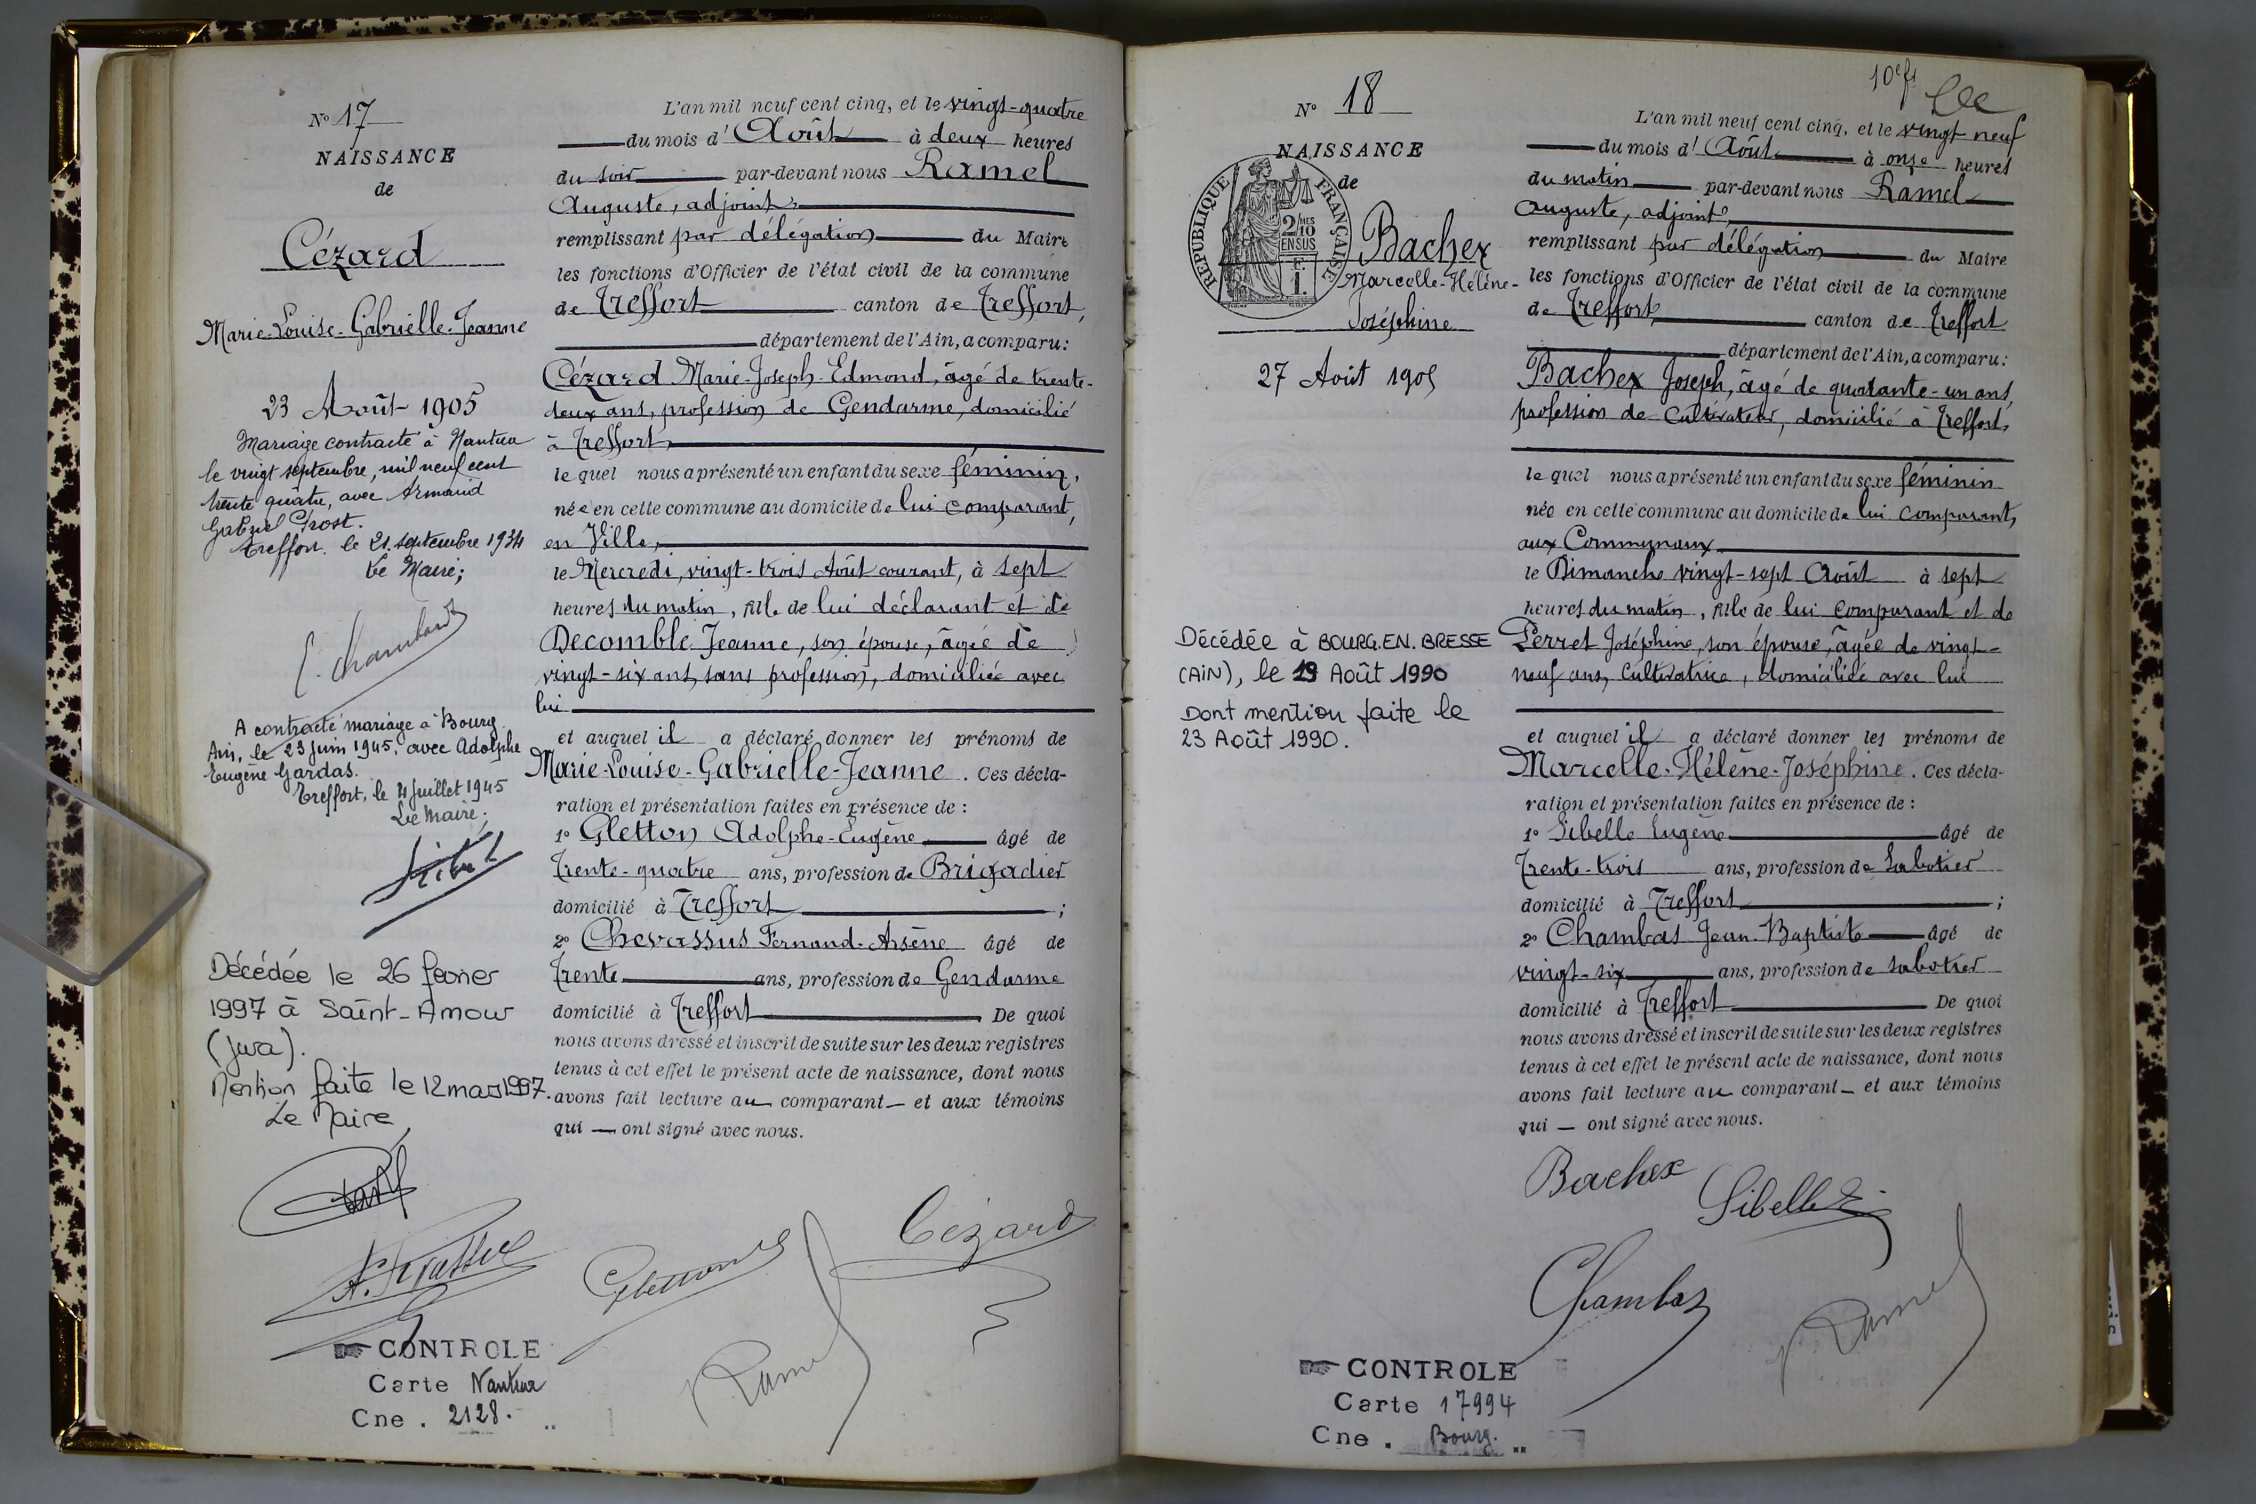 N° 17
NAISSANCE
de
Cézard
Marie-Louise-Gabrielle-Jeanne
23 Août 1905
Mariage contracté à Nantua
le vingt septembre, mil neuf cent
trente quatre, avec Armand
Gabriel Prost.
Treffort. le 21. septembre 1934
Le Maire;
C. Chambard
A contracté mariage à Bourg
Ain, le 23 juin 1945, avec Adolphe
Eugène Gardas.
Treffort, le 4 juillet 1945
Le Maire;
Décédée le 26 fevrier
1997 à Saint-Amour
(Jura).
Mention faite le 12 mars 1997.
Le Maire,
L'an mil neuf cent cinq, et le vingt-quatre
du mois d'Août à deux heures
du soir par-devant nous Ramel
Auguste, adjoint,
remplissant par délégation du Maire
les fonctions d'Officier de l'état civil de la commune
de Treffort canton de Treffort,
département de l'Ain, a comparu:
Cézard Marie-Joseph-Edmond, âgé de trente-
deux ans, profession de Gendarme, domicilié
à Treffort,
lequel nous a présenté un enfant du sexe féminin,
née en cette commune au domicile de lui comparant,
en Ville,
le Mercredi, vingt-trois Août courant, à sept
heures du matin, fille de lui déclarant et de
Decomble Jeanne, son épouse, âgée de
vingt-six ans, sans profession, domiciliée avec
lui
et auquel il a déclaré donner les prénoms de
Marie-Louise-Gabrielle-Jeanne. Ces décla-
ration et présentation faites en présence de :
1° Gletton Adolphe-Eugène âgé de
Trente-quatre ans, profession de Brigadier
domicilié à Treffort ;
2° Chevassus Fernand-Arsène âgé de
Trente ans, profession de Gendarme
domicilié à Treffort De quoi
nous avons dressé et inscrit de suite sur les deux registres
tenus à cet effet le présent acte de naissance, dont nous
avons fait lecture au comparant et aux témoins
qui ont signé avec nous.
Gletton
Cézard
Ramel
CONTROLE
Carte Nantua
Cne. 2128.
10e ft
N° 18
NAISSANCE
de
RÉPUBLIQUE FRANÇAISE
2/10 MES
EN SUS
F.
1.
Bachex
Marcelle-Hélène-
Joséphine
27 Août 1905
Décédée à BOURG.EN.BRESSE
(AIN), le 19 Août 1990
Dont mention faite le
23 Août 1990.
L'an mil neuf cent cinq, et le vingt neuf
du mois d'Août à onze heures
du matin par-devant nous Ramel
Auguste, adjoint
remplissant par délégation du Maire
les fonctions d'Officier de l'état civil de la commune
de Treffort canton de Treffort
département de l'Ain, a comparu:
Bachex Joseph, âgé de quarante-un ans,
profession de Cultivateur, domicilié à Treffort,
lequel nous a présenté un enfant du sexe féminin
née en cette commune au domicile de lui comparant,
aux Communaux
le Dimanche vingt-sept Août à sept
heures du matin, fille de lui comparant et de
Perret Joséphine, son épouse, âgée de vingt-
neuf ans, Cultivatrice, domiciliée avec lui
et auquel il a déclaré donner les prénoms de
Marcelle-Hélène-Joséphine. Ces décla-
ration et présentation faites en présence de :
1° Sibelle Eugène âgé de
Trente-trois ans, profession de Sabotier
domicilié à Treffort ;
2° Chambas Jean-Baptiste âgé de
vingt-six ans, profession de sabotier
domicilié à Treffort De quoi
nous avons dressé et inscrit de suite sur les deux registres
tenus à cet effet le présent acte de naissance, dont nous
avons fait lecture au comparant et aux témoins
qui ont signé avec nous.
Bachex
Sibelle
Chambas
Ramel
CONTROLE
Carte 17994
Cne. Bourg.